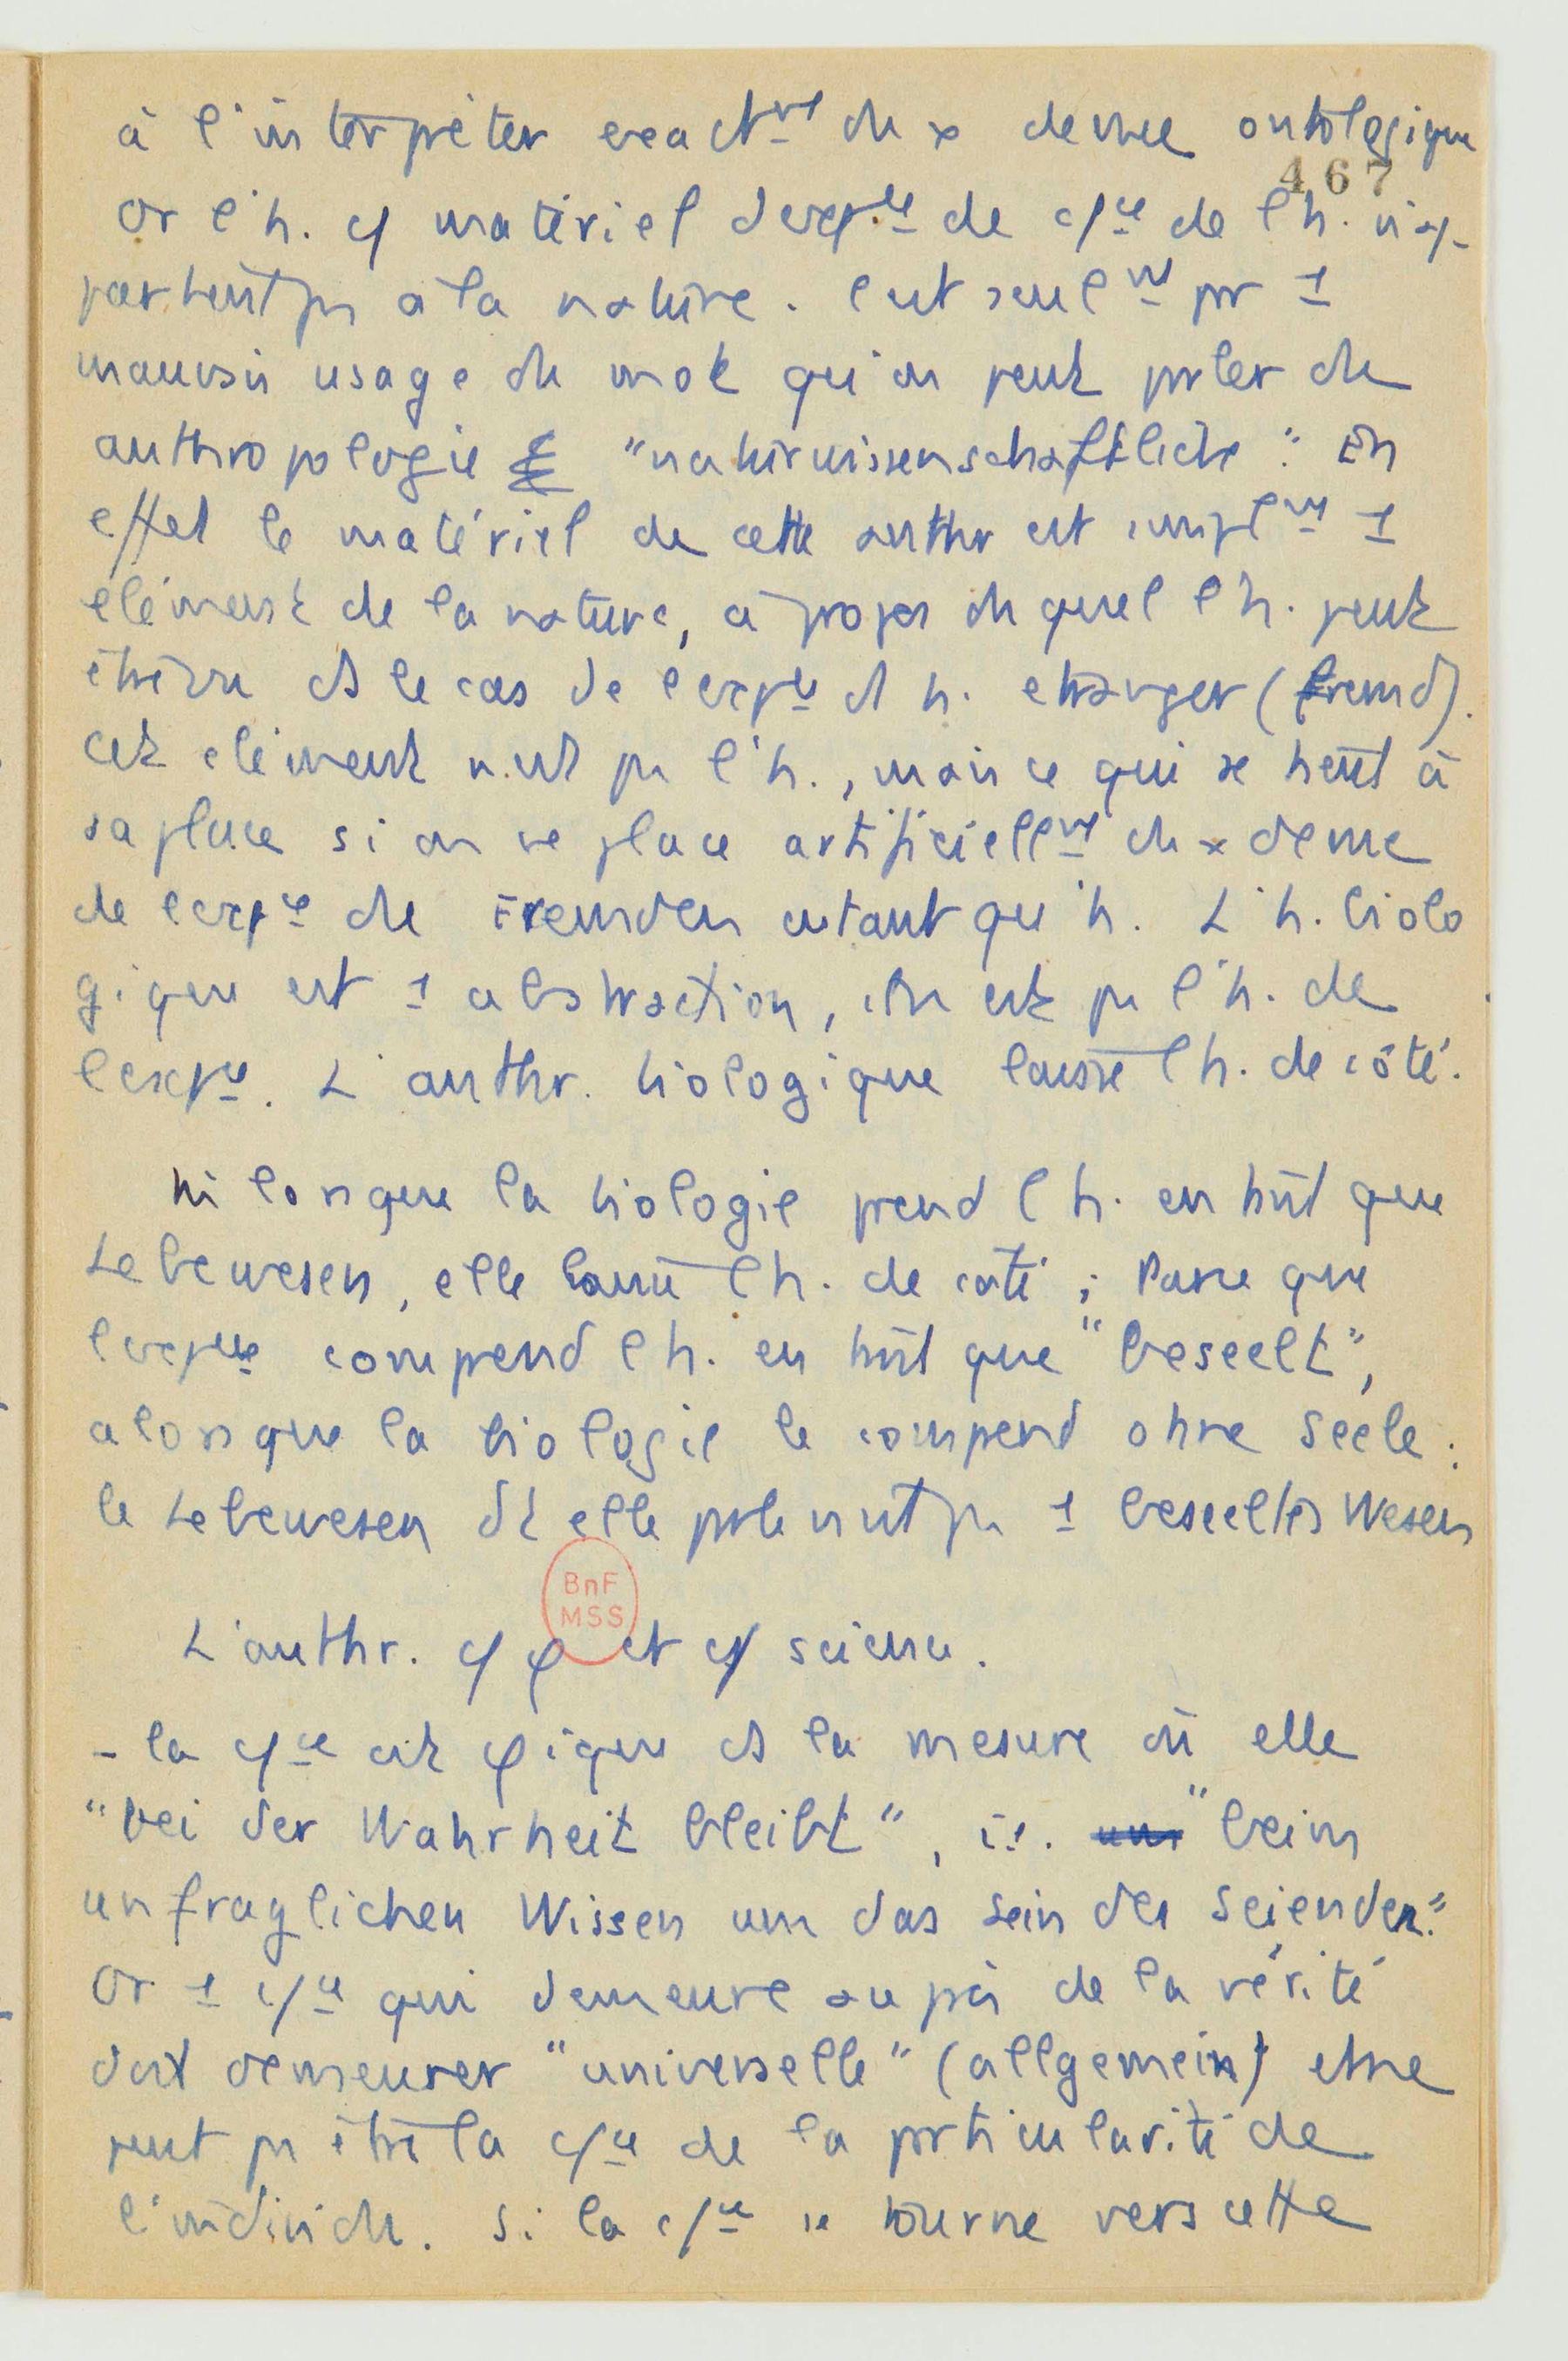 à l'interpréter exactmt du x de vue ontologique
467
Or l'h. c/ matériel d'expce de c/ce de l'h. n'ap-
partient pas à la nature. C'est seulmt par 1
mauvais usage du mot qu'on peut parler de
anthropologie "naturwissenschaftliche". En
effet le matériel de cette anthr est simplmt 1
élément de la nature, à propos duquel l'h. peut
être vu ds le cas de l'expce d'1 h. étranger (fremd).
Cet élément n'est pas l'h., mais ce qui se tient à
sa place si on se place artificiellmt du x de vue
de l'expce du Fremden en tant qu'h. L'h. biolo
gique est 1 abstraction, ce n'est pas l'h. de
l'expce. L'anthr. biologique laisse l'h. de côté.
Ni lorsque la biologie prend l'h. en tant que
Lebewesen, elle laisse l'h. de côté ; Parce que
l'expce comprend l'h. en tant que "beseelt",
alors que la biologie le comprend ohne Seele :
le Lebewesen dt elle parle n'est pas 1 beseeltes Wesen
L'anthr. c/ φ et c/ science.
- la c/ce est φique ds la mesure où elle
"bei der Wahrheit bleibt", i.e. "beim
unfraglichen Wissen um das Sein des Seienden."
Or 1 c/ce qui demeure auprès de la vérité
doit demeurer "universelle" (allgemein) et ne
peut pas être la c/ce de la particularité de
l'individu. Si la c/ce se tourne vers cette